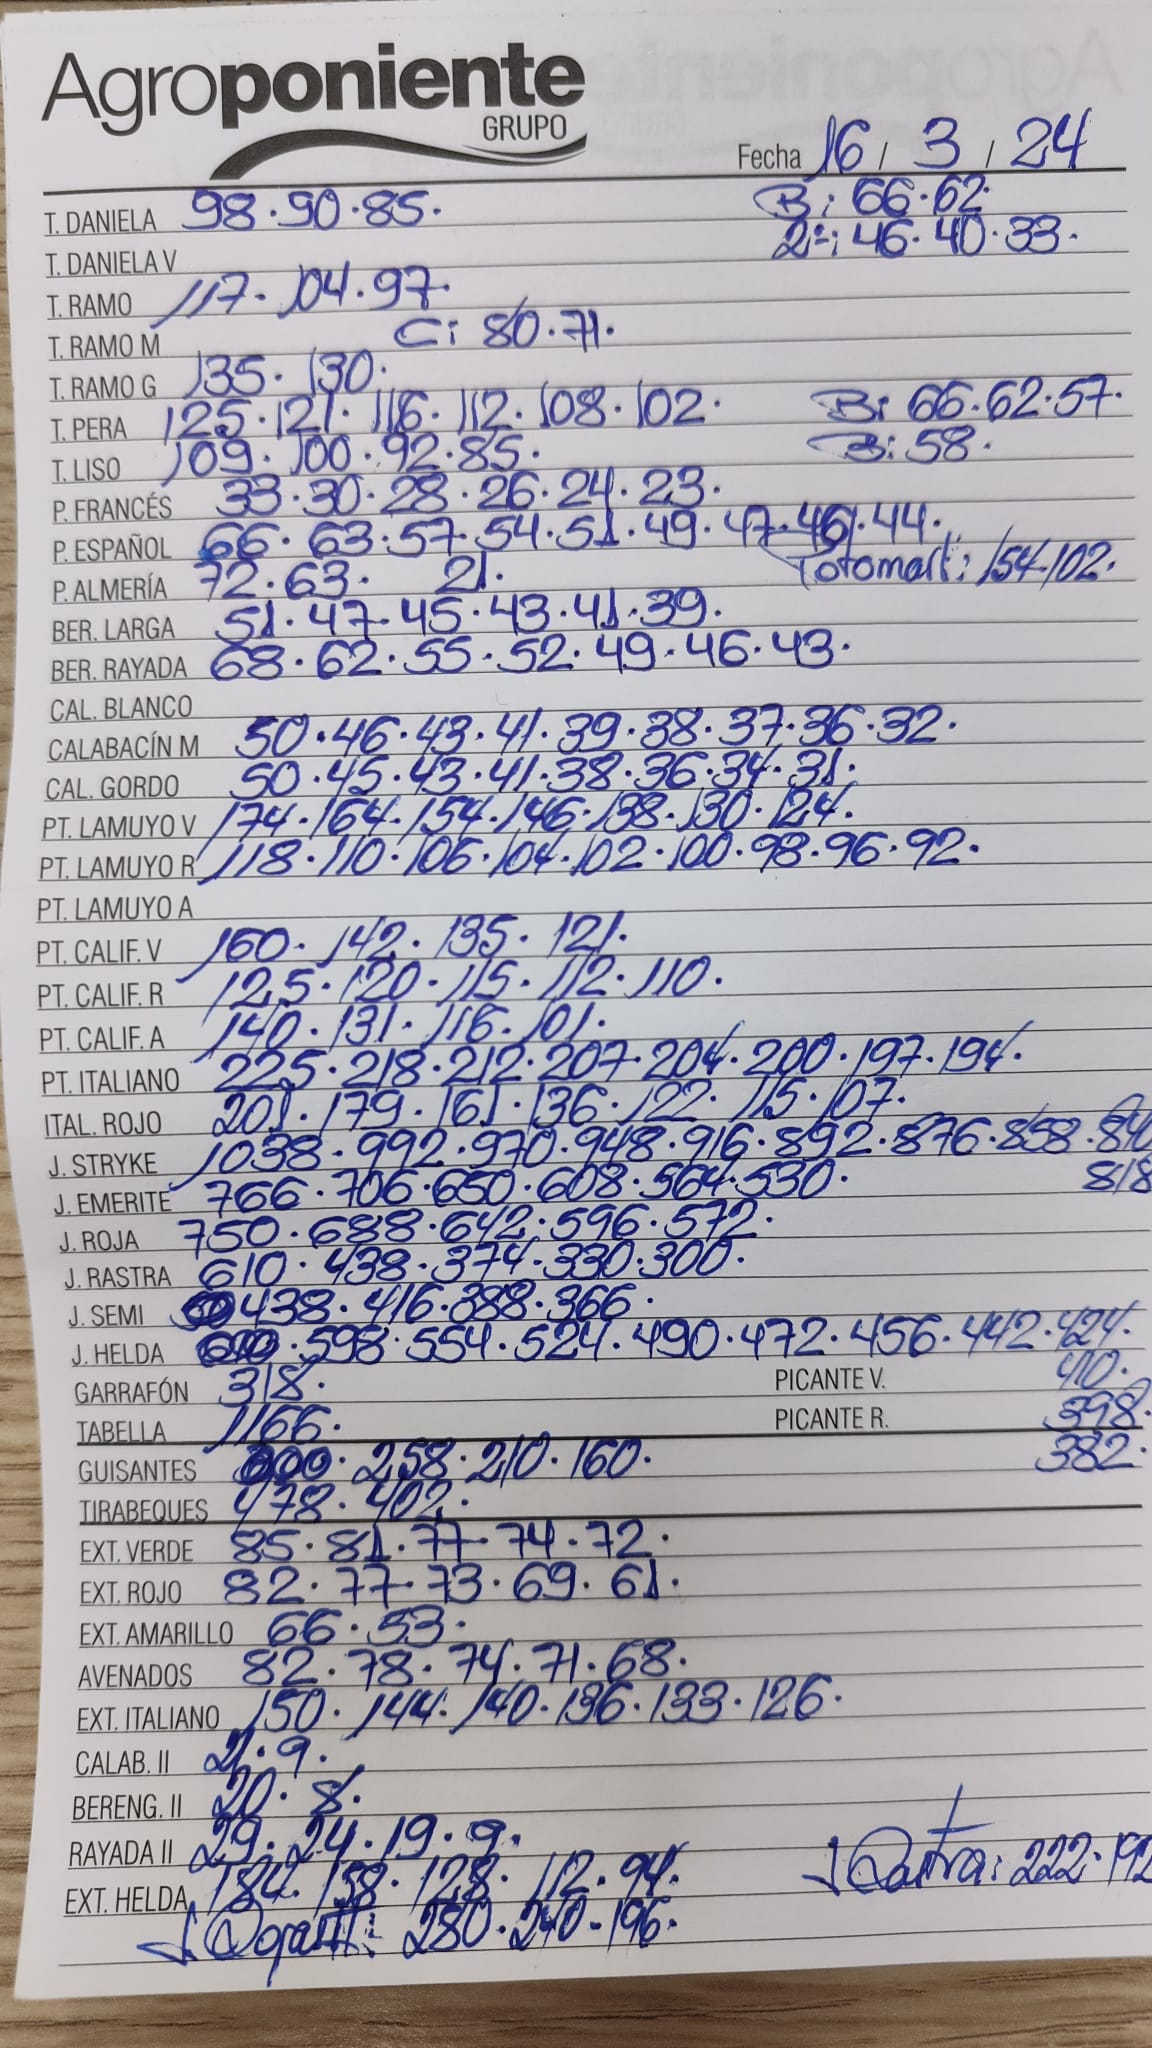 Agroponiente
GRUPO
Fecha 16 / 3 / 24
T. DANIELA 98·90·85· B: 66·62·
T. DANIELA V 2ª: 46·40·33·
T. RAMO 117·104·97·
T. RAMO M C: 80·71·
T. RAMO G 135·130·
T. PERA 125·121·116·112·108·102· B: 66·62·57·
T. LISO 109·100·92·85· B: 58·
P. FRANCÉS 33·30·28·26·24·23·
P. ESPAÑOL 66·63·57·54·51·49·47·46·44·
P. ALMERÍA 72·63· 21· : 154·102·
BER. LARGA 51·47·45·43·41·39·
BER. RAYADA 68·62·55·52·49·46·43·
CAL. BLANCO
CALABACÍN M 50·46·43·41·39·38·37·36·32·
CAL. GORDO 50·45·43·41·38·36·34·31·
PT. LAMUYO V 174·164·154·146·138·130·124·
PT. LAMUYO R 118·110·106·104·102·100·98·96·92·
PT. LAMUYO A
PT. CALIF. V 160·142·135·121·
PT. CALIF. R 125·120·115·112·110·
PT. CALIF. A 140·131·116·101·
PT. ITALIANO 225·218·212·207·204·200·197·194·
ITAL. ROJO 201·179·161·136·122·115·107·
J. STRYKE 1038·992·970·948·916·892·876·858·840
J. EMERITE 766·706·650·608·564·530· 818
J. ROJA 750·688·642·596·572·
J. RASTRA 610·438·374·330·300·
J. SEMI 438·416·388·366·
J. HELDA 610·598·554·524·490·472·456·442·424·
GARRAFÓN 318· PICANTE V. 410·
TABELLA 1166· PICANTE R. 398·
GUISANTES ·258·210·160· 382·
TIRABEQUES 478·402·
EXT. VERDE 85·81·77·74·72·
EXT. ROJO 82·77·73·69·61·
EXT. AMARILLO 66·53·
AVENADOS 82·78·74·71·68·
EXT. ITALIANO 150·144·140·136·133·126·
CALAB. II 21·9·
BERENG. II 20·8·
RAYADA II 29·24·19·9·
EXT. HELDA 184·158·128·112·94· J Rastra: 222·192
J : 280·240·196·